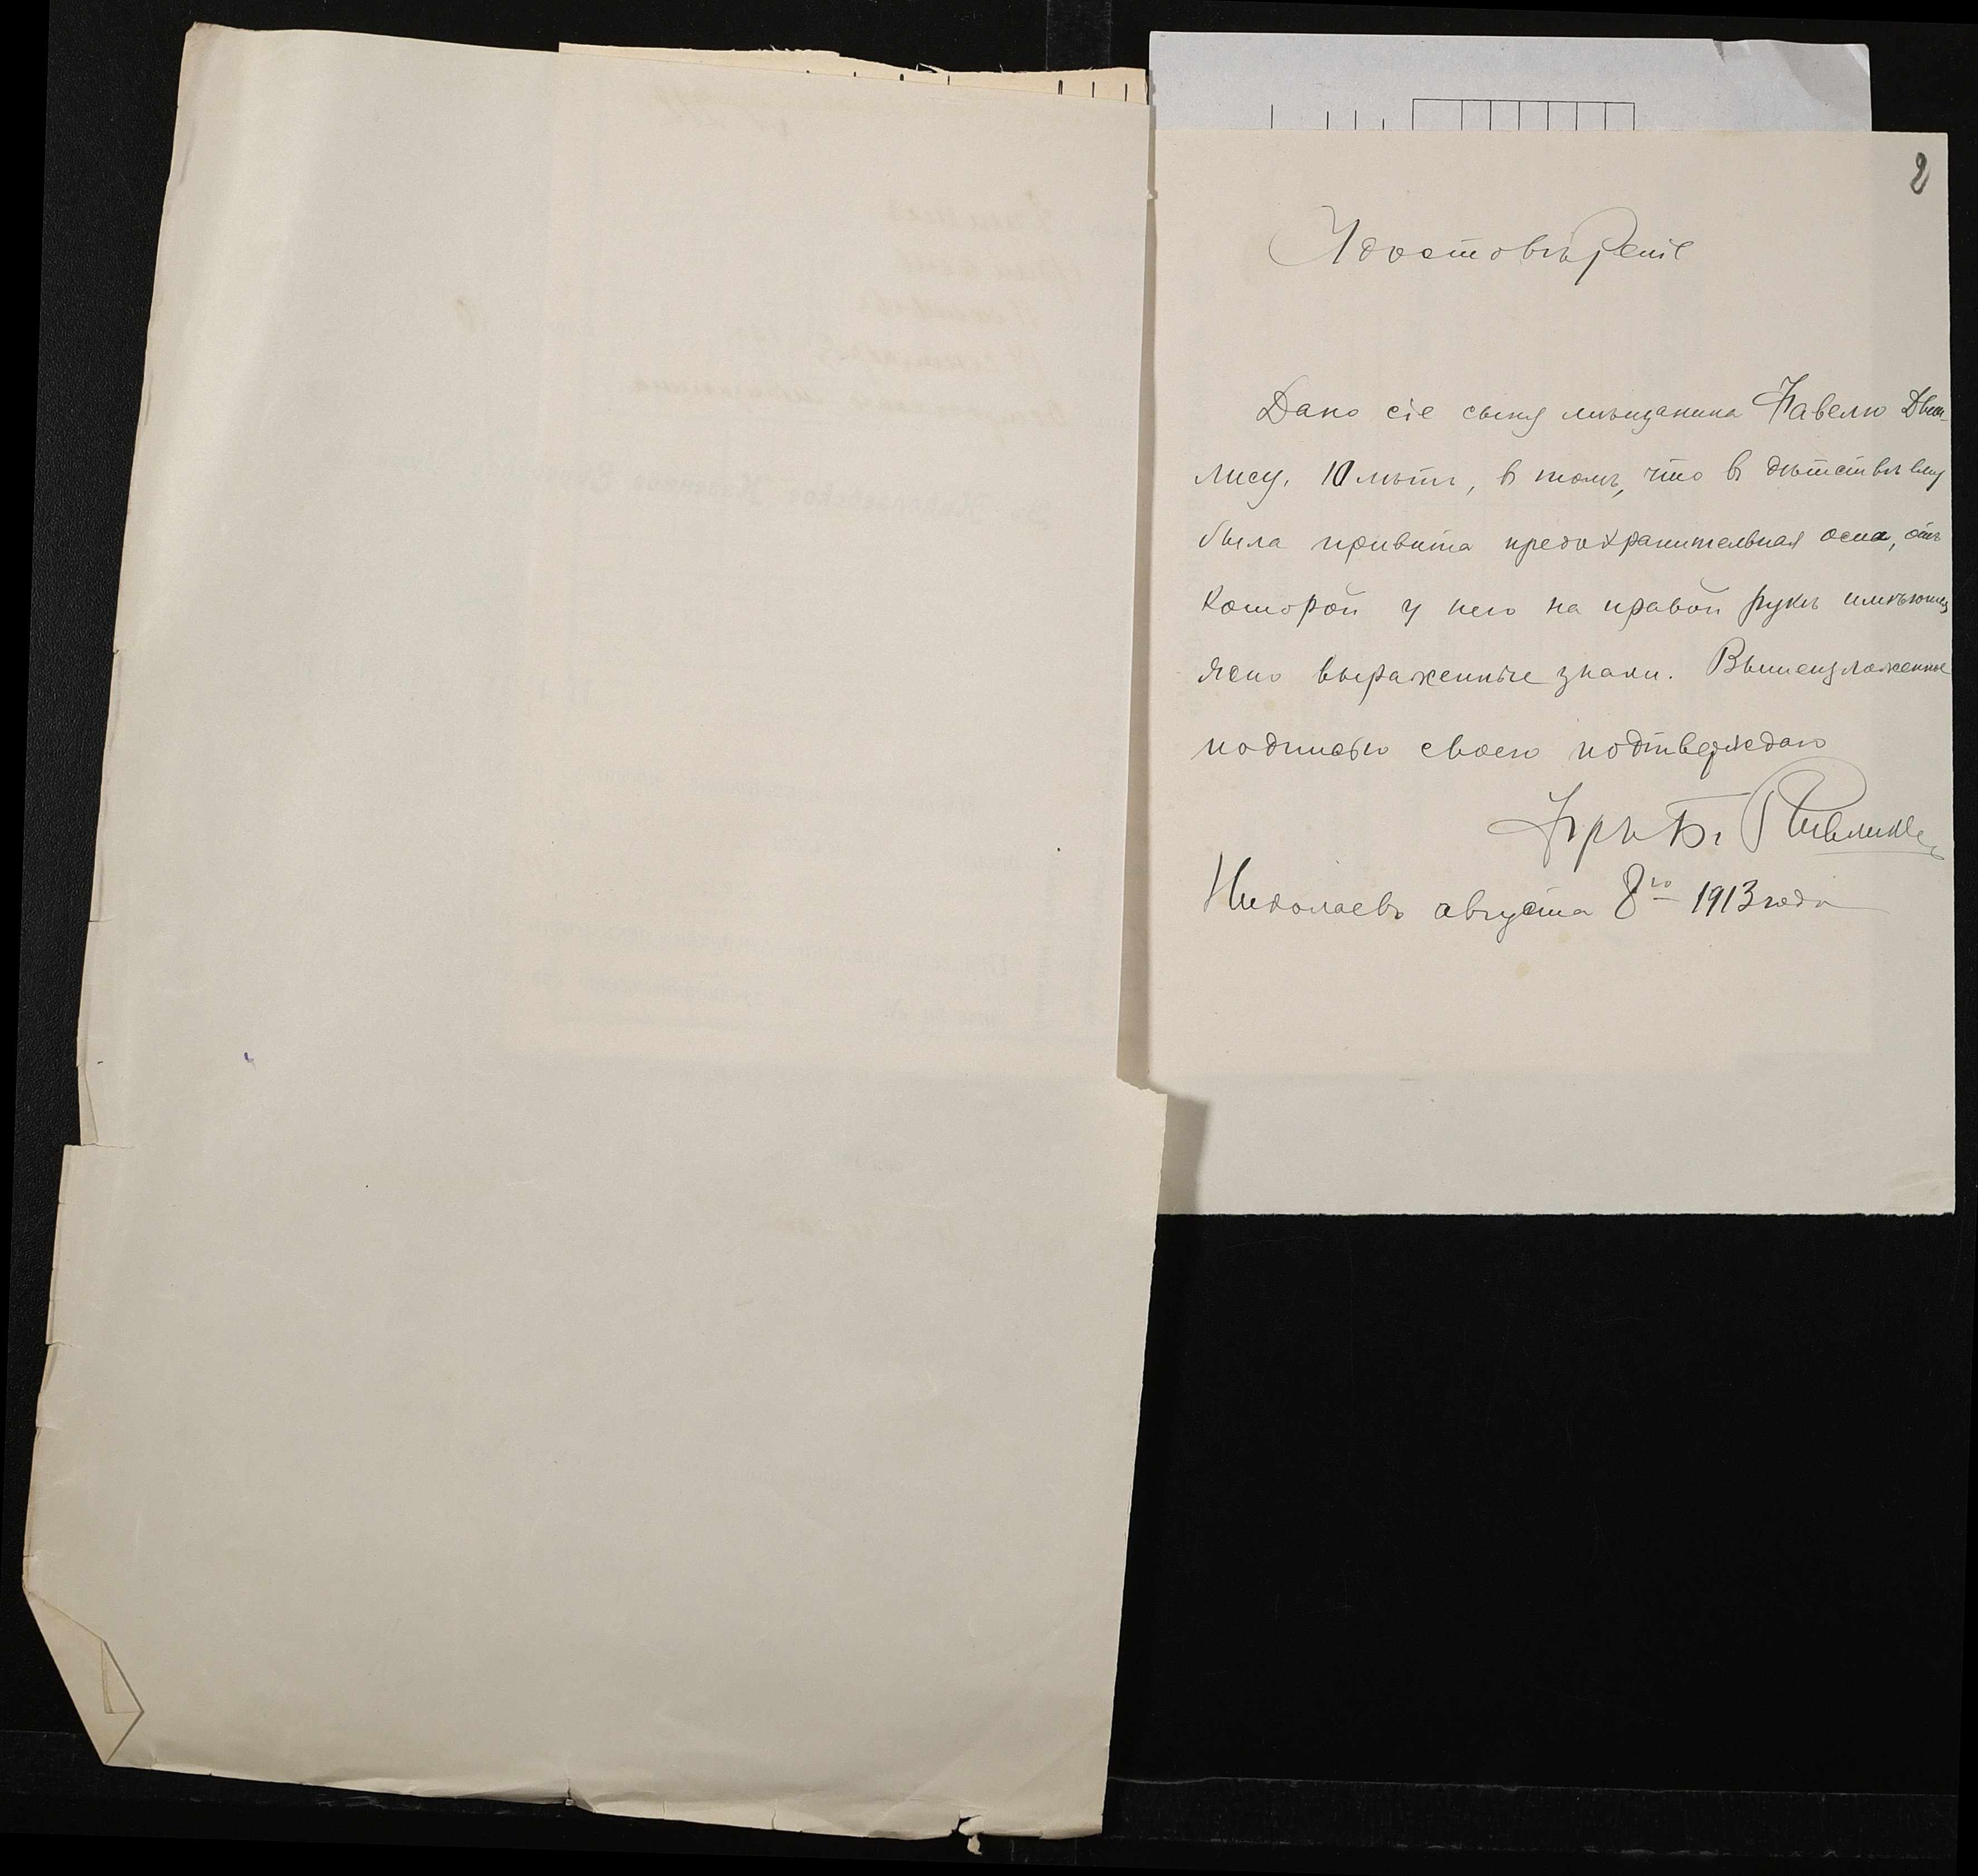 2
Удостовѣреніе
Дано сіе сыну мѣщанина Павелю
лису, 10 лѣтъ, в томъ, что в дѣтствѣ ему
была привита предохранительная оспа, отъ
которой у него на правой рукѣ имѣются
ясно выраженные знаки. Вышеизложенное
подписью своею подтверждаю
Врачъ Б.
Николаевъ августа 8го 1913 года